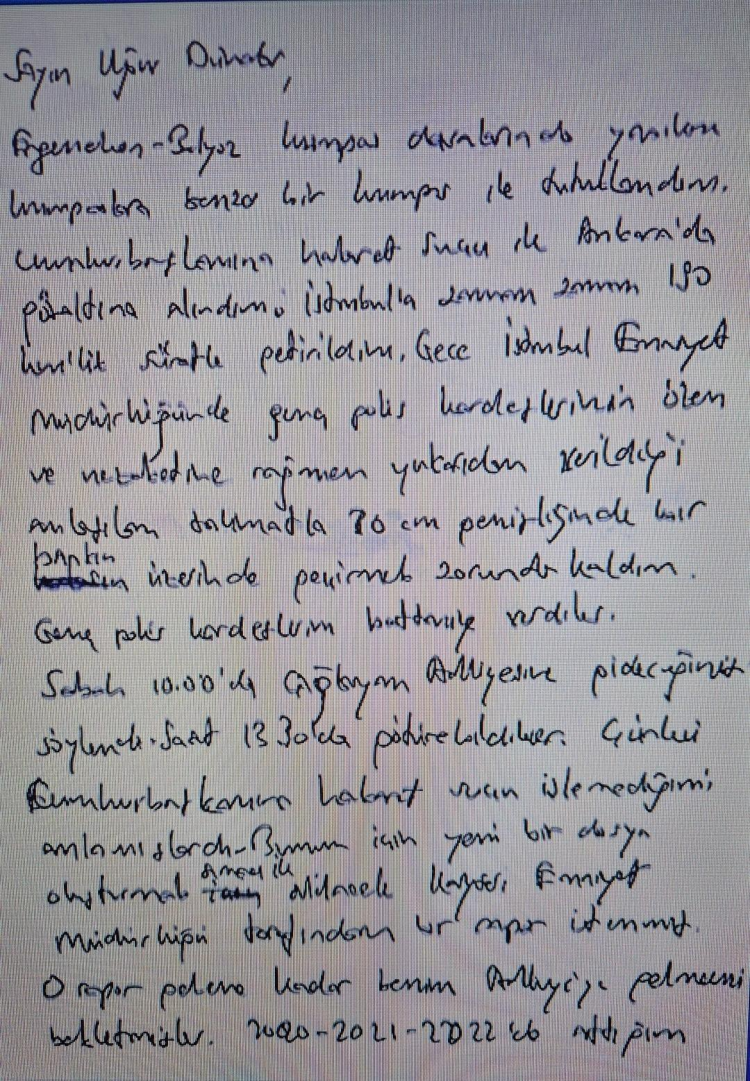 Sayın Uğur Dündar,
Ergenekon-Balyoz kumpas davalarında yapılan
kumpaslara benzer bir kumpas ile tutuklandım.
Cumhurbaşkanına hakaret suçu ile Ankara'da
gözaltına alındım. İstanbul'a zaman zaman 190
km'lik süratle getirildim. Gece İstanbul Emniyet
Müdürlüğünde genç polis kardeşlerimin özen
ve nezaketine rağmen yukarıdan verildiği
anlaşılan talimatla 70 cm genişliğinde bir
bankın üzerinde geçirmek zorunda kaldım.
Genç polis kardeşlerim battaniye verdiler.
Sabah 10.00'da Çağlayan Adliyesine gideceğimiz
söylendi. Saat 13 30'da götürebildiler. Çünkü
Cumhurbaşkanına hakaret suçu işlemediğimi
anlamışlardı. Bunun için yeni bir dosya
oluşturmak amacı ile Kayseri Emniyet
Müdürlüğü tarafından bir rapor istenmiş.
O rapor gelene kadar benim Adliyeye gelmemi
bekletmişler. 2020-2021-2022'de attığım